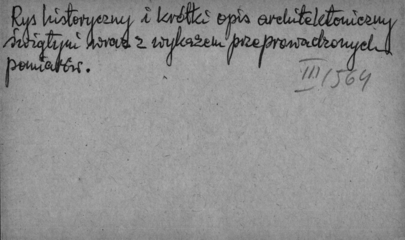 Rys historyczny i krótki opis architektoniczny
świątyni wraz z wykazem przeprowadzonych
pomiarów.
III/1564